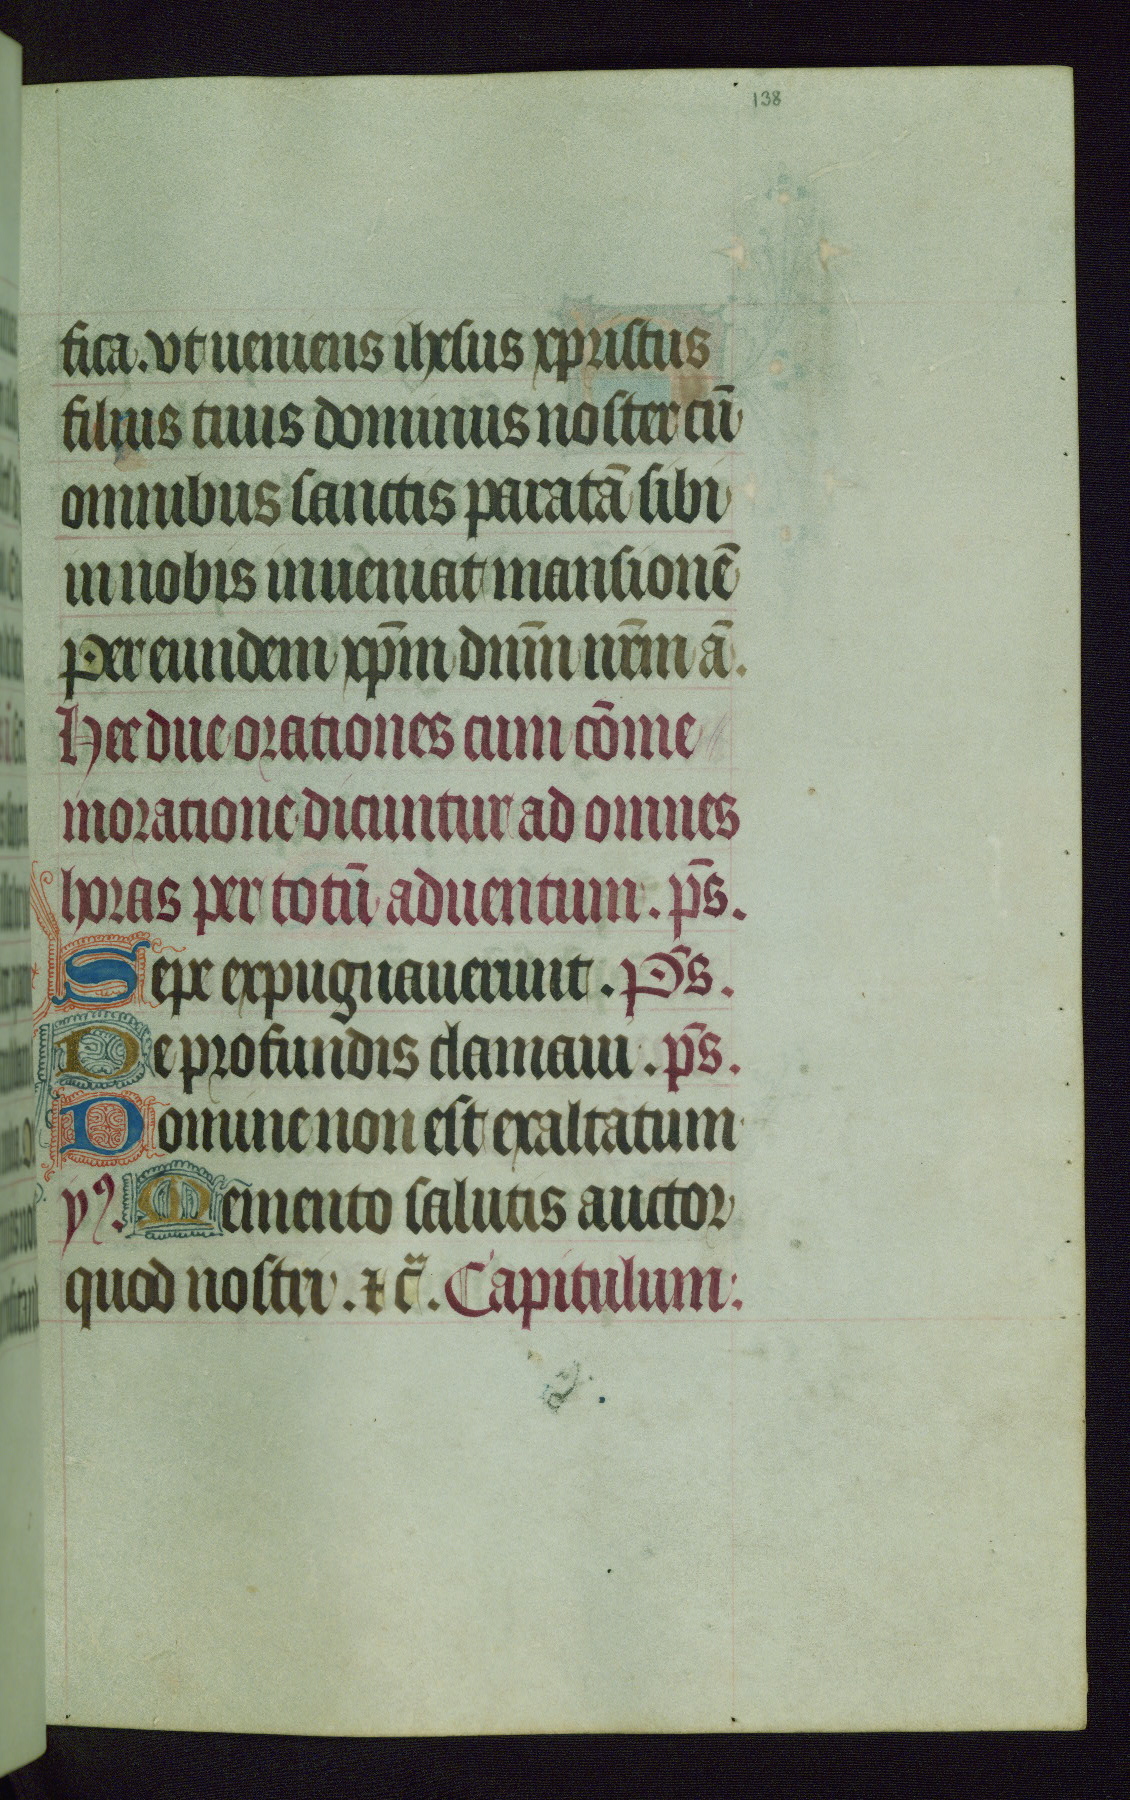 138
fica. vt ueniens ihesus xpristus
filius tuus dominus noster cū
omnibus sanctis paratā sibi
in nobis inueniat mansionē
Per eundem xp̄m dn̄m nr̄m ā.
Hee due orationes cum cōme
moratione dicuntur ad omnes
horas per totū aduentum. ps̄.
Sepe expugnauerunt. Ps̄.
De profundis clamaui. ps̄.
Domine non est exaltatum
yꝰ. Memento salutis auctor
quod nostri. ⁊ c̄. Capitulum: